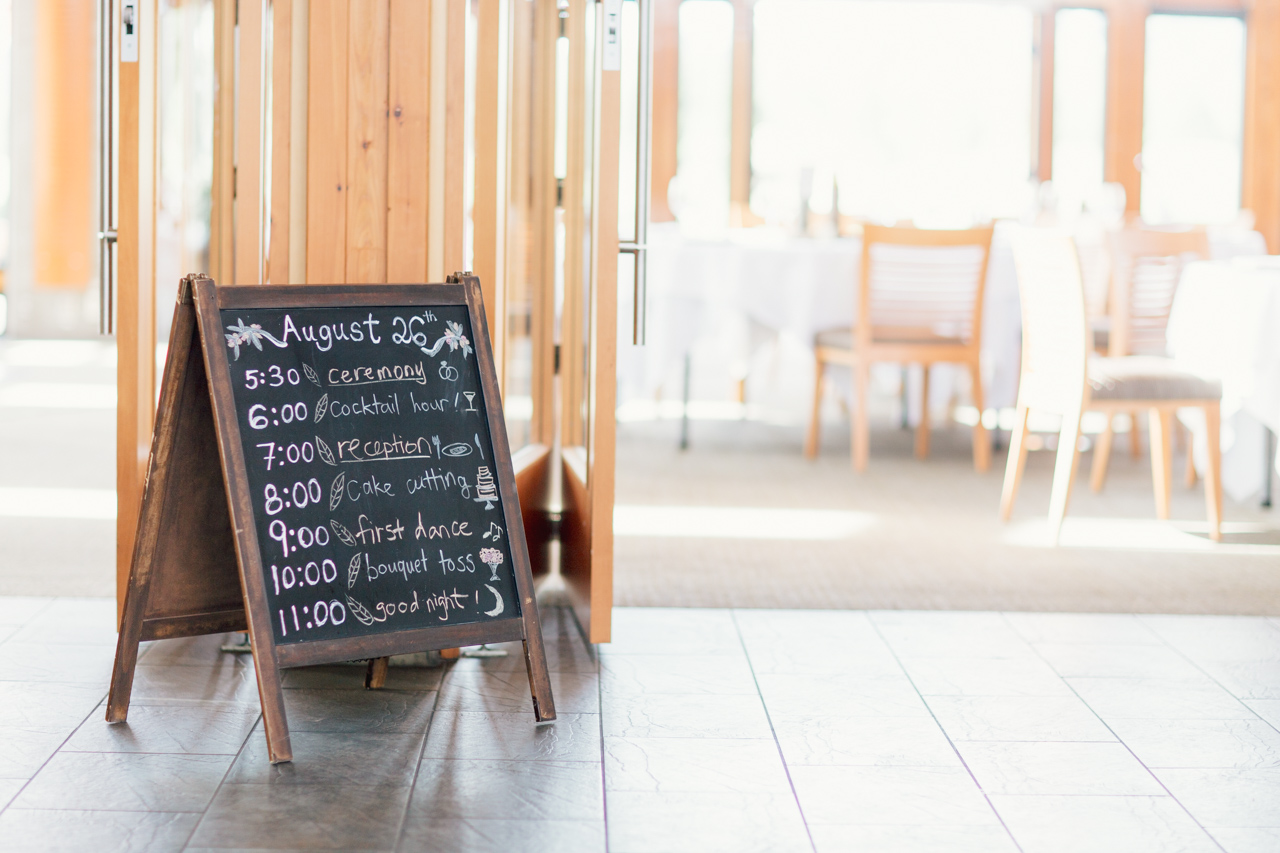 August 26th
5:30 ceremony
6:00 Cocktail hour!
7:00 reception
8:00 Cake cutting
9:00 first dance
10:00 bouquet toss
11:00 good night!